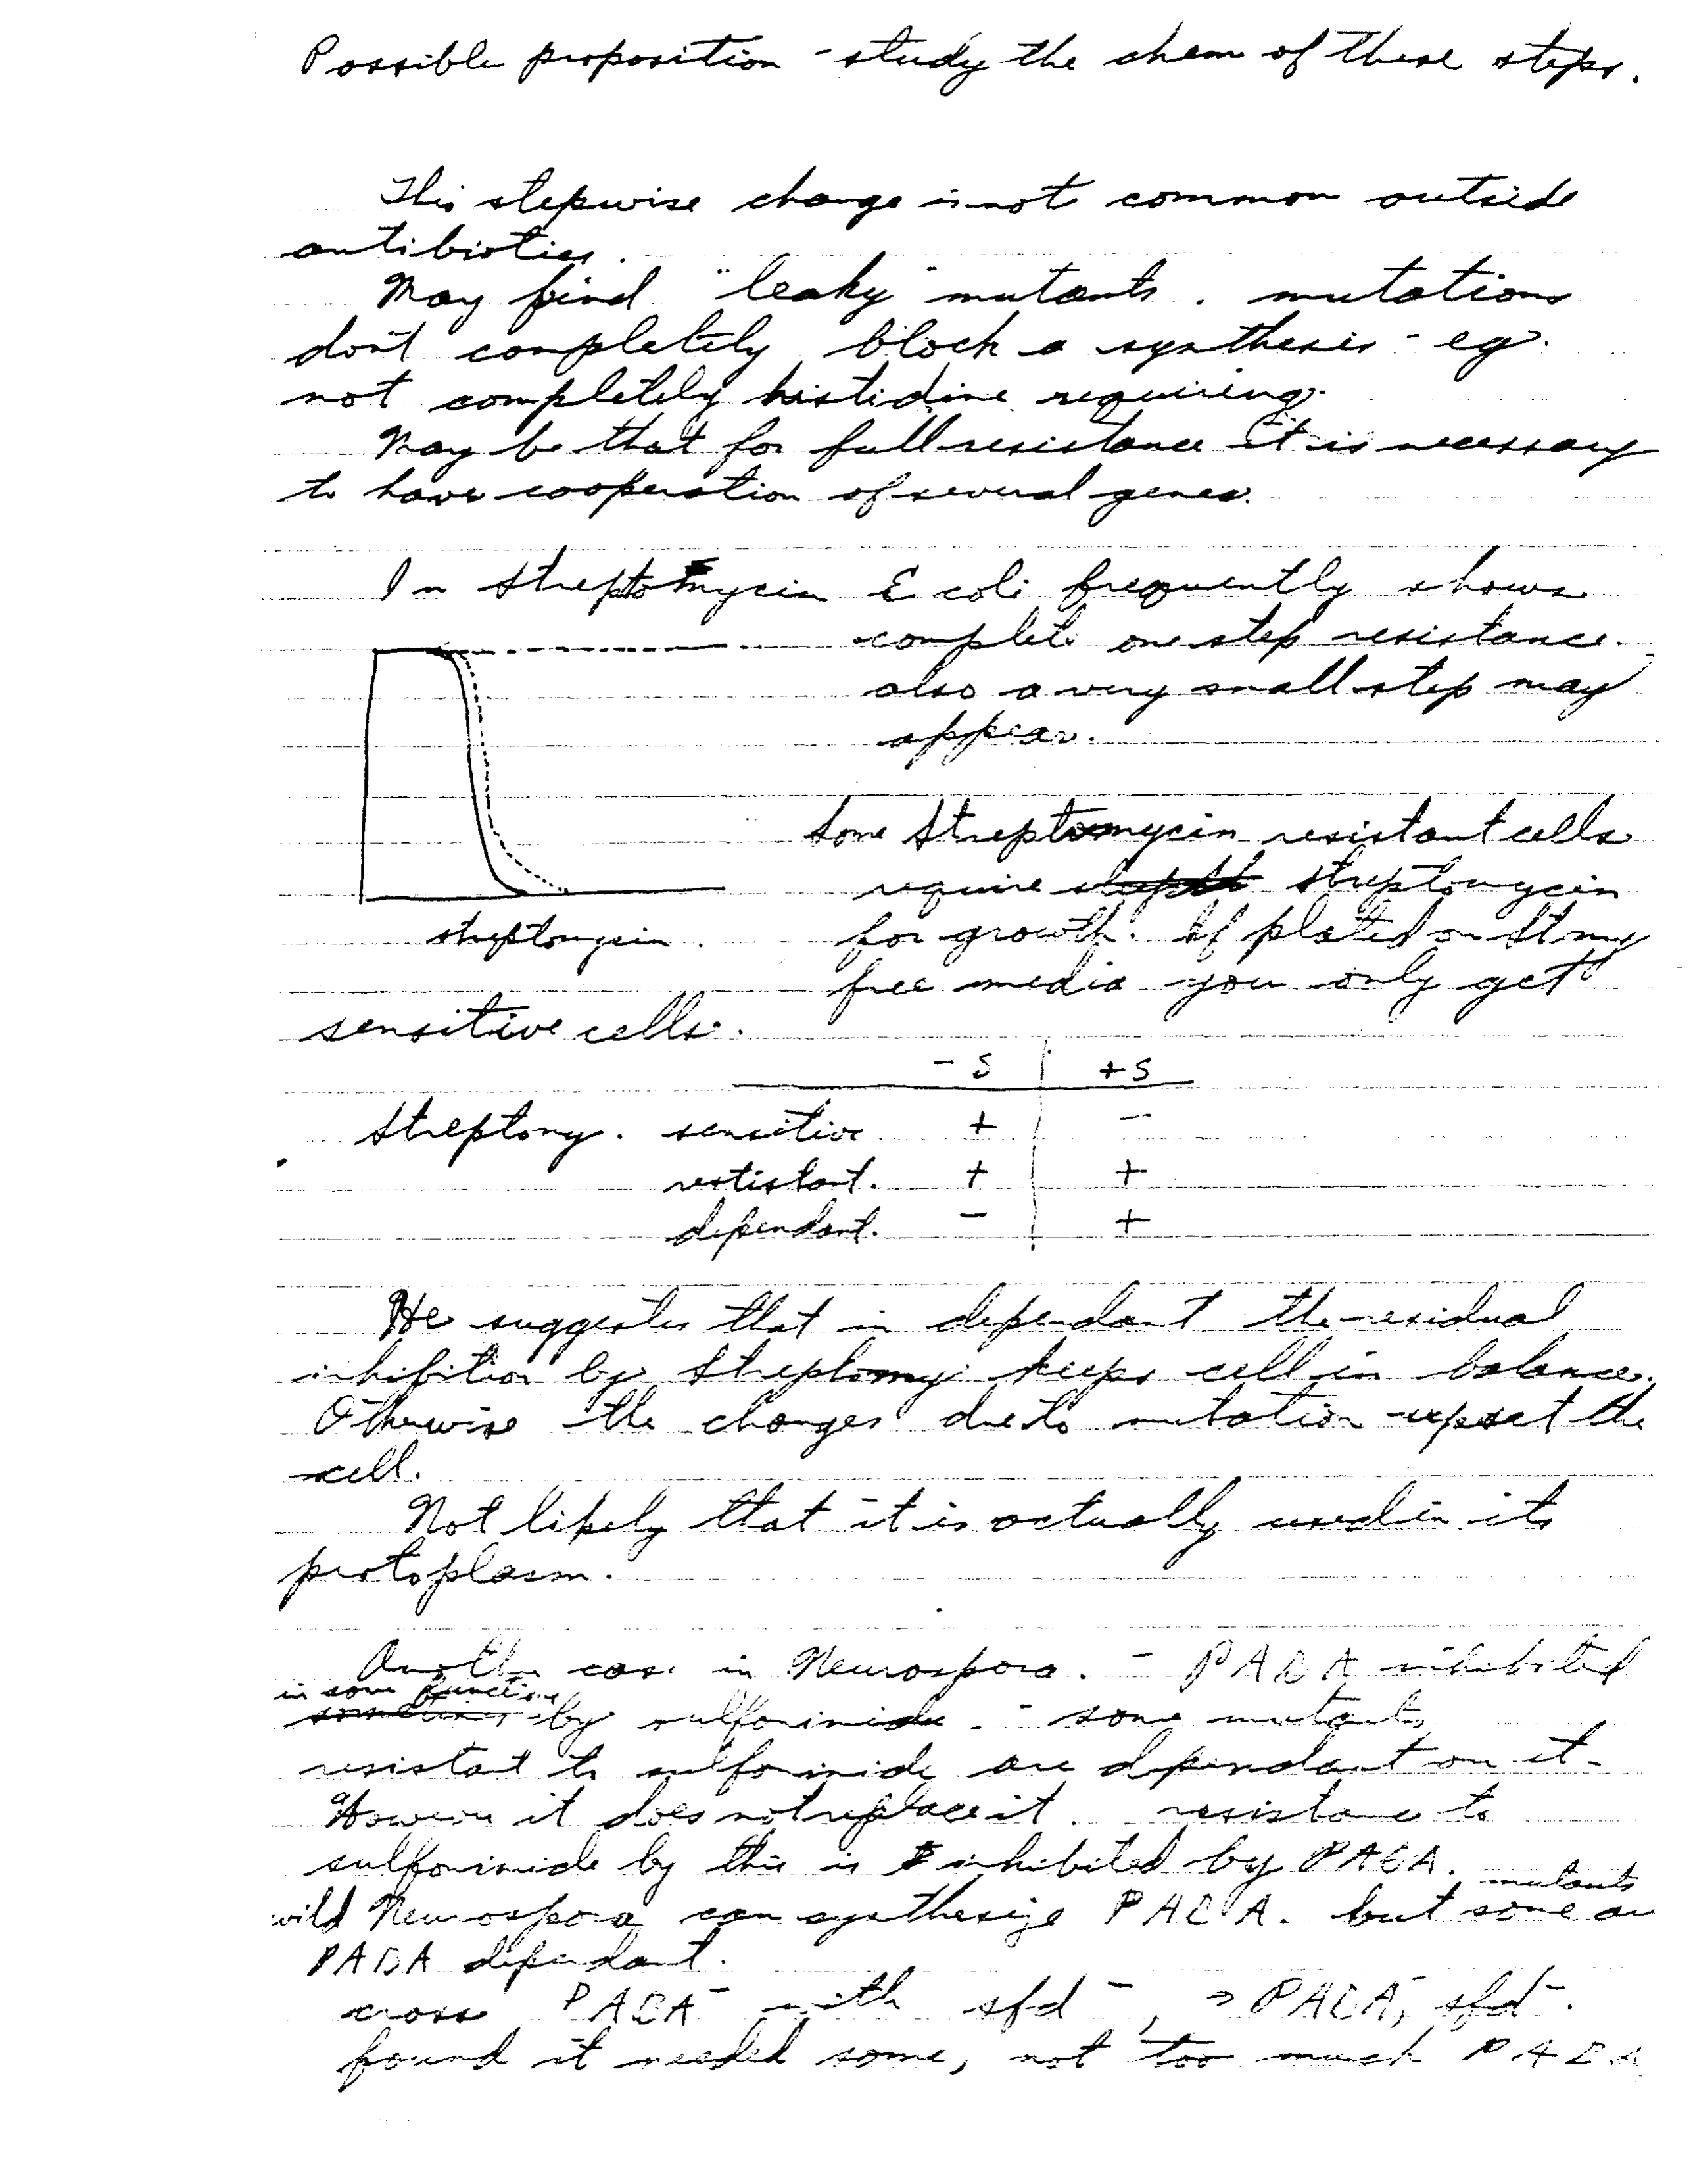 Possible proposition - study the chem of these steps.
This stepwise change is not common outside
antibiotics.
May find "leaky" mutants. mutations
don't completely block a synthesis - eg.
not completely histidine requiring.
May be that for full resistance it is necessary
to have cooperation of several genes.
In streptomycin E coli frequently shows
complete one step resistance.
also a very small step may
appear.
Some Streptomycin resistant cells
require streptomycin
streptomycin.
for growth. If plated on Stmy
free media you only get
sensitive cells.
- S | + S
Streptomy. sensitive + -
restistant. + +
dependant. - +
He suggests that in dependant the residual
inhibition by Streptomy keeps cell in balance.
Otherwise the changes due to mutation upset the
cell.
Not likely that it is actually used in its
protoplasm.
Another case in Neurospora. - PABA inhibited
in some function
by sulfonimide - some mutants
resistat to sulfonimide are dependant on it -
However it does not replace it. resistance to
sulfonimide by this is inhibited by PABA.
mutants
wild Neurospora can synthesize PABA. but some are
PABA dependant.
cross PABA⁻ with sfd⁻, → PABA⁻, sfd⁻.
found it needed some, not too much PABA